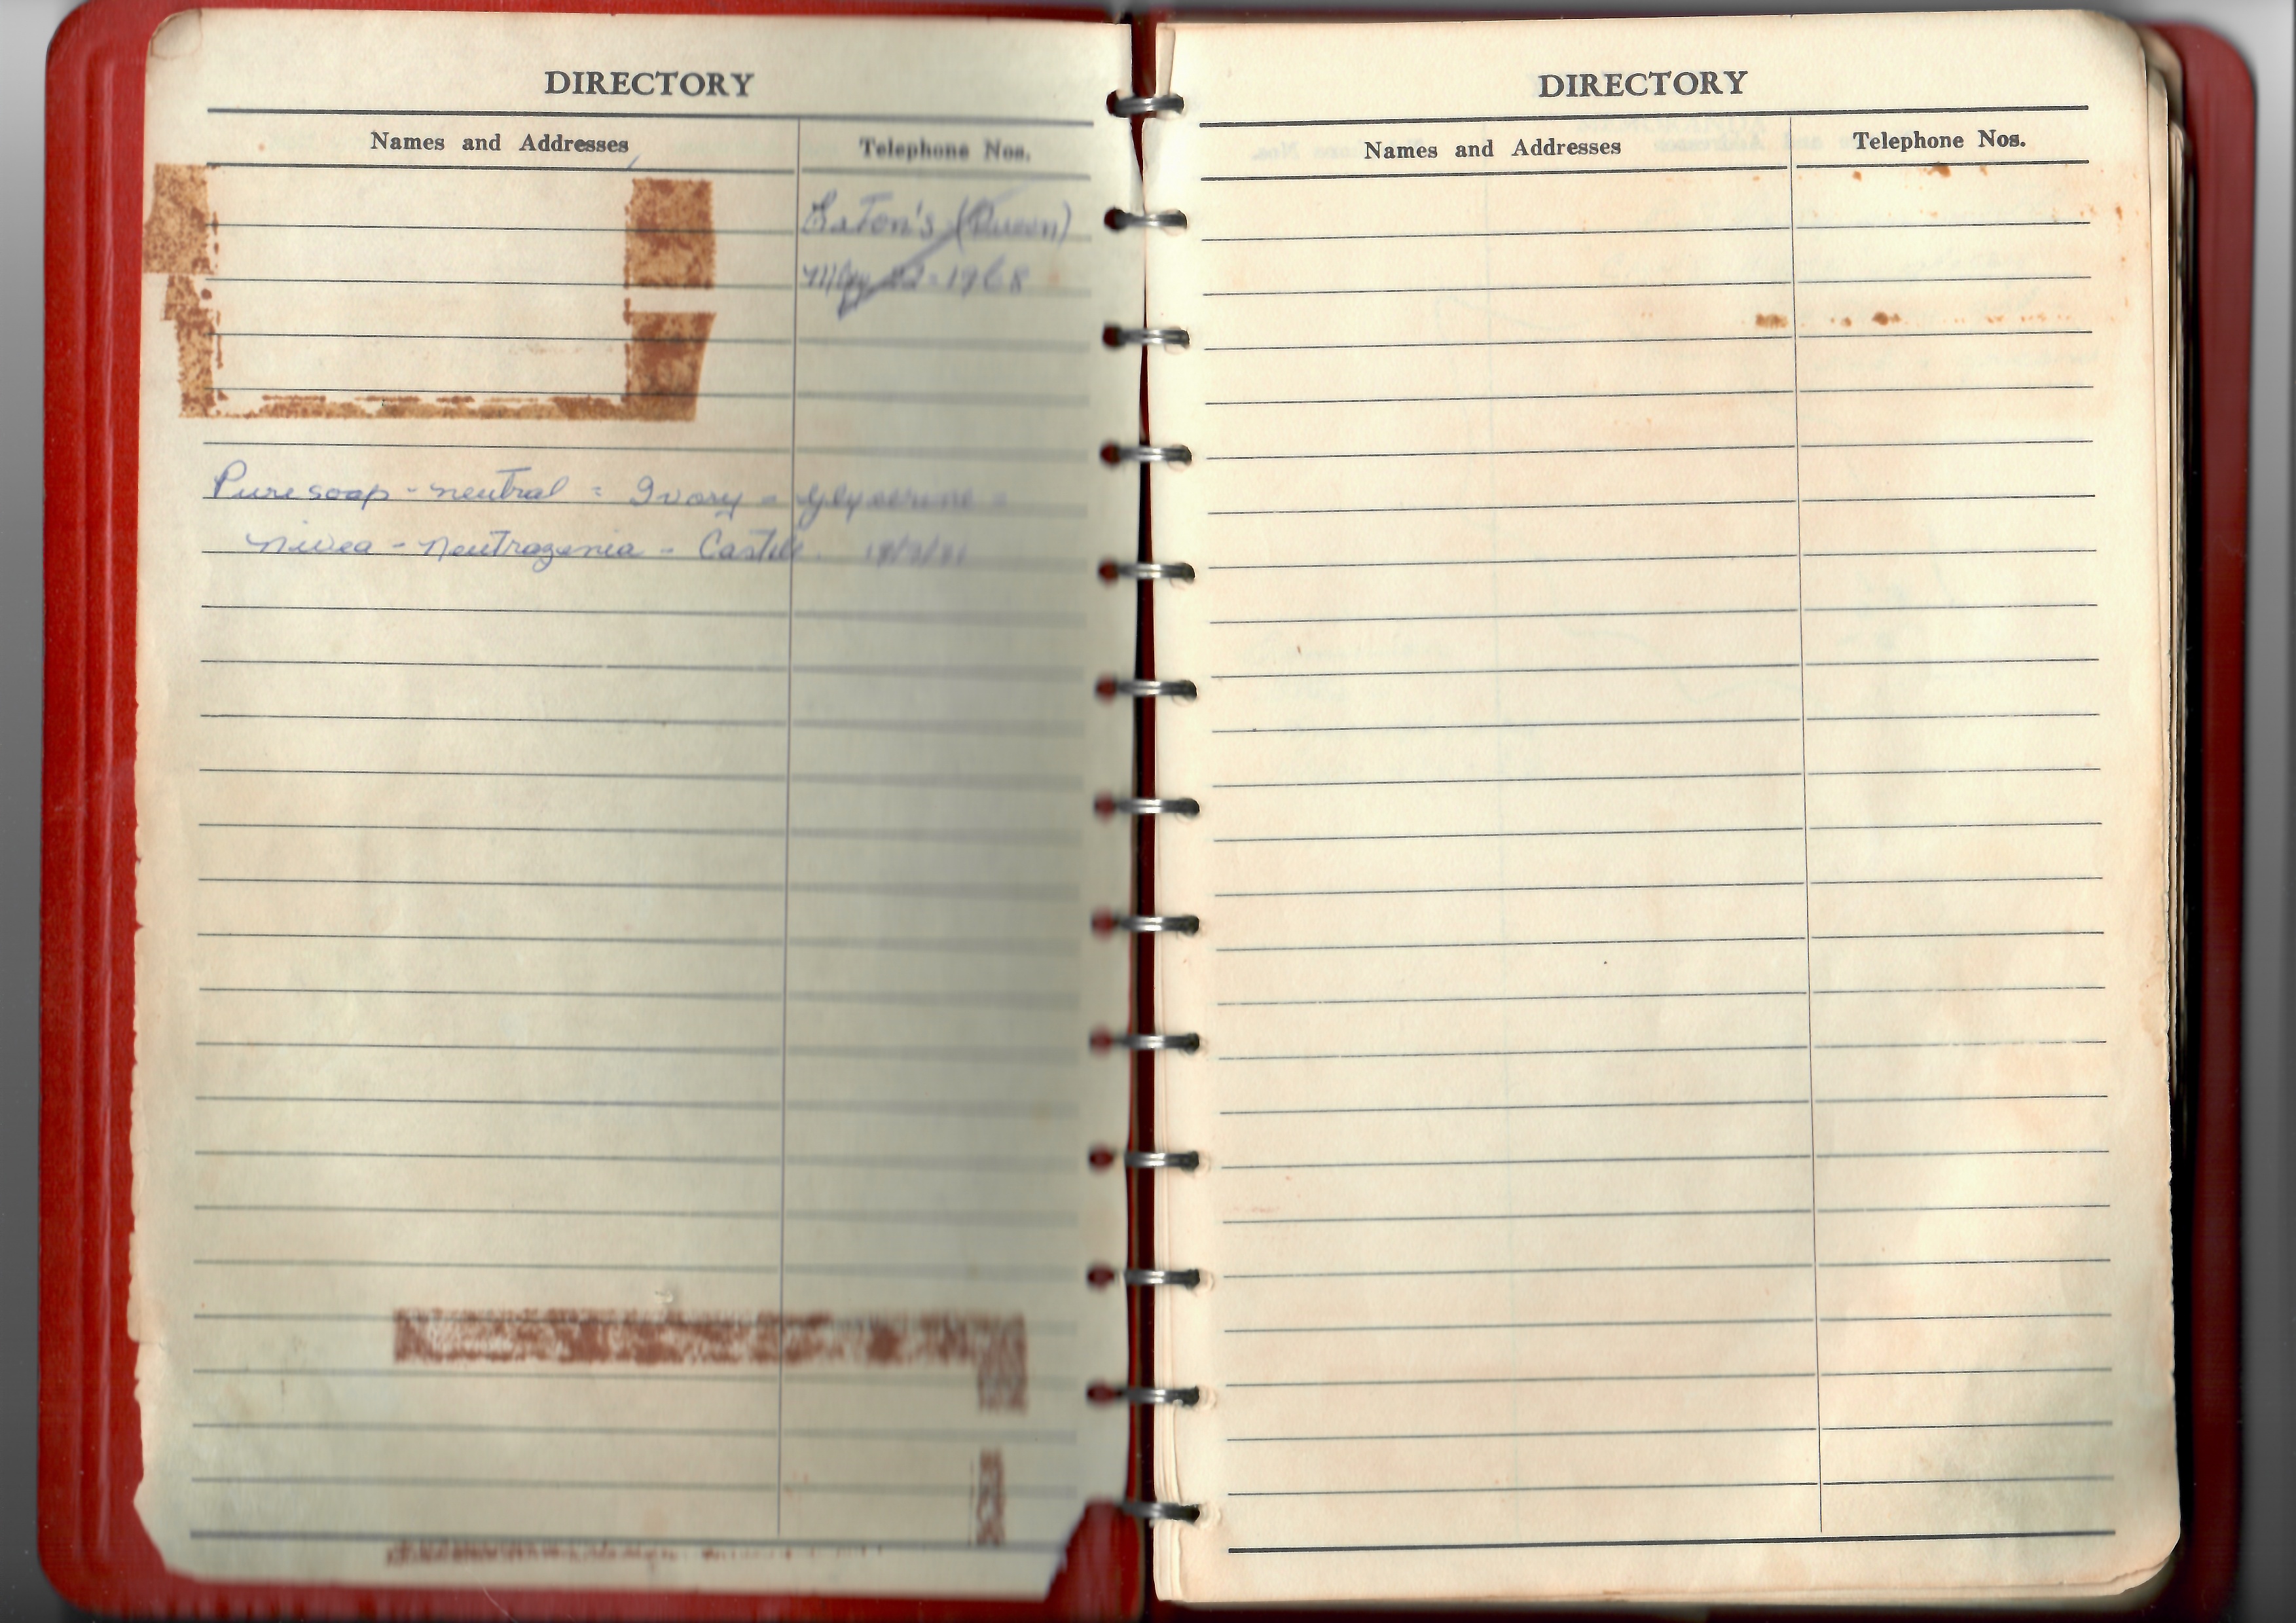 DIRECTORY
Names and Addresses Telephone Nos.
Eaton's (Queen)
May 22-1968
Pure soap - neutral = Ivory - Glycerine =
nivea - neutrogenia - Castile.
DIRECTORY
Names and Addresses Telephone Nos.